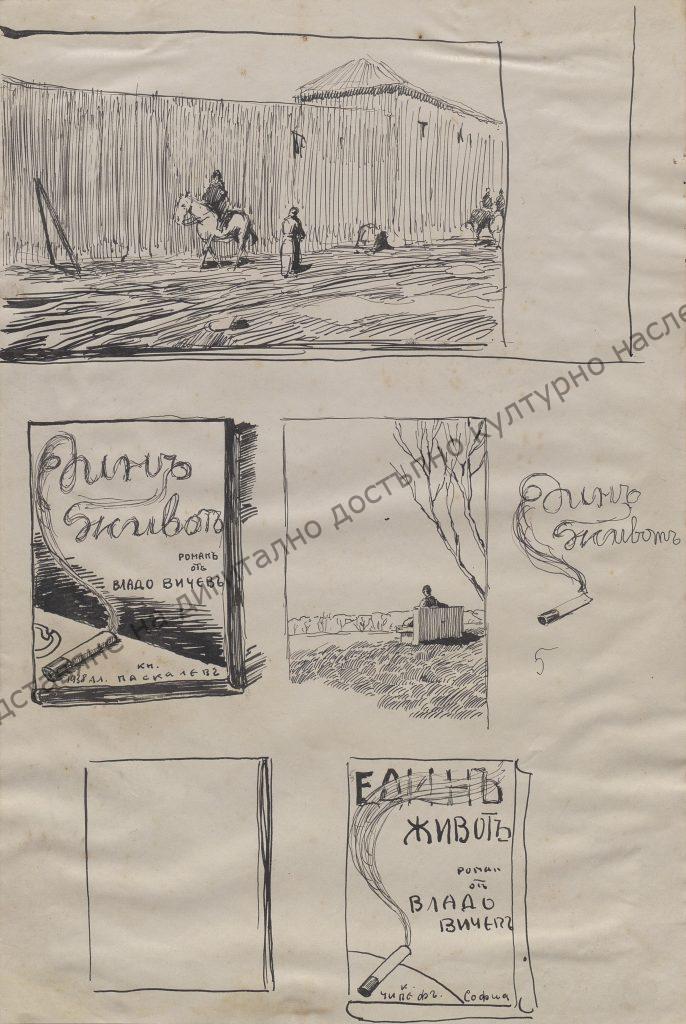 Единъ
животъ
романъ
отъ
Владо Вичевъ
кн.
1938 Ал. Паскалевъ
Единъ
животъ
5
ЕДИНЪ
ЖИВОТЪ
роман
отъ
ВЛАДО
ВИЧЕВЪ
к.
Чипевъ. София
дставяне на дигитално достъпно културно насле